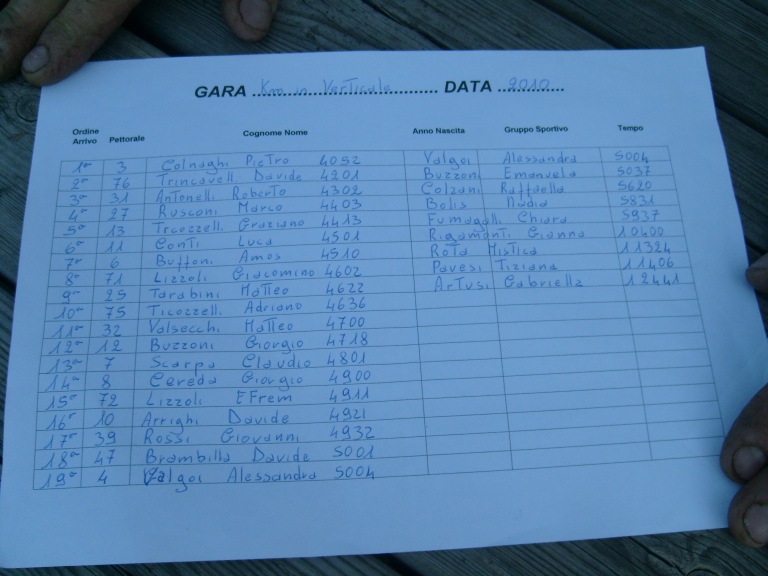 GARA Km in Verticale DATA 2010
Ordine Arrivo Pettorale Cognome Nome Anno Nascita Gruppo Sportivo Tempo
1° 3 Colnaghi Pietro 4052 Valgoi Alessandra 5004
2° 76 Trincavelli Davide 4201 Buzzoni Emanuela 5037
3° 31 Antonelli Roberto 4302 Colzani Raffaella 5620
4° 27 Rusconi Marco 4403 Bolis Nadia 5831
5° 13 Graziano 4413 Fumagalli Chiara 5937
6° 11 Conti Luca 4501 Rigamonti Gianna 10400
7° 6 Buffoni Amos 4510 Rota Mistica 11324
8° 71 Lizzoli Giacomino 4602 Pavesi Tiziana 11406
9° 25 Tarabini Matteo 4622 Artusi Gabriella 12441
10° 75 Ticozzelli Adriano 4636
11° 32 Valsecchi Matteo 4700
12° 12 Buzzoni Giorgio 4718
13° 7 Scarpa Claudio 4801
14° 8 Cereda Giorgio 4900
15° 72 Lizzoli Efrem 4911
16° 10 Arrighi Davide 4921
17° 39 Rossi Giovanni 4932
18° 47 Brambilla Davide 5001
19° 4 Valgoi Alessandra 5004